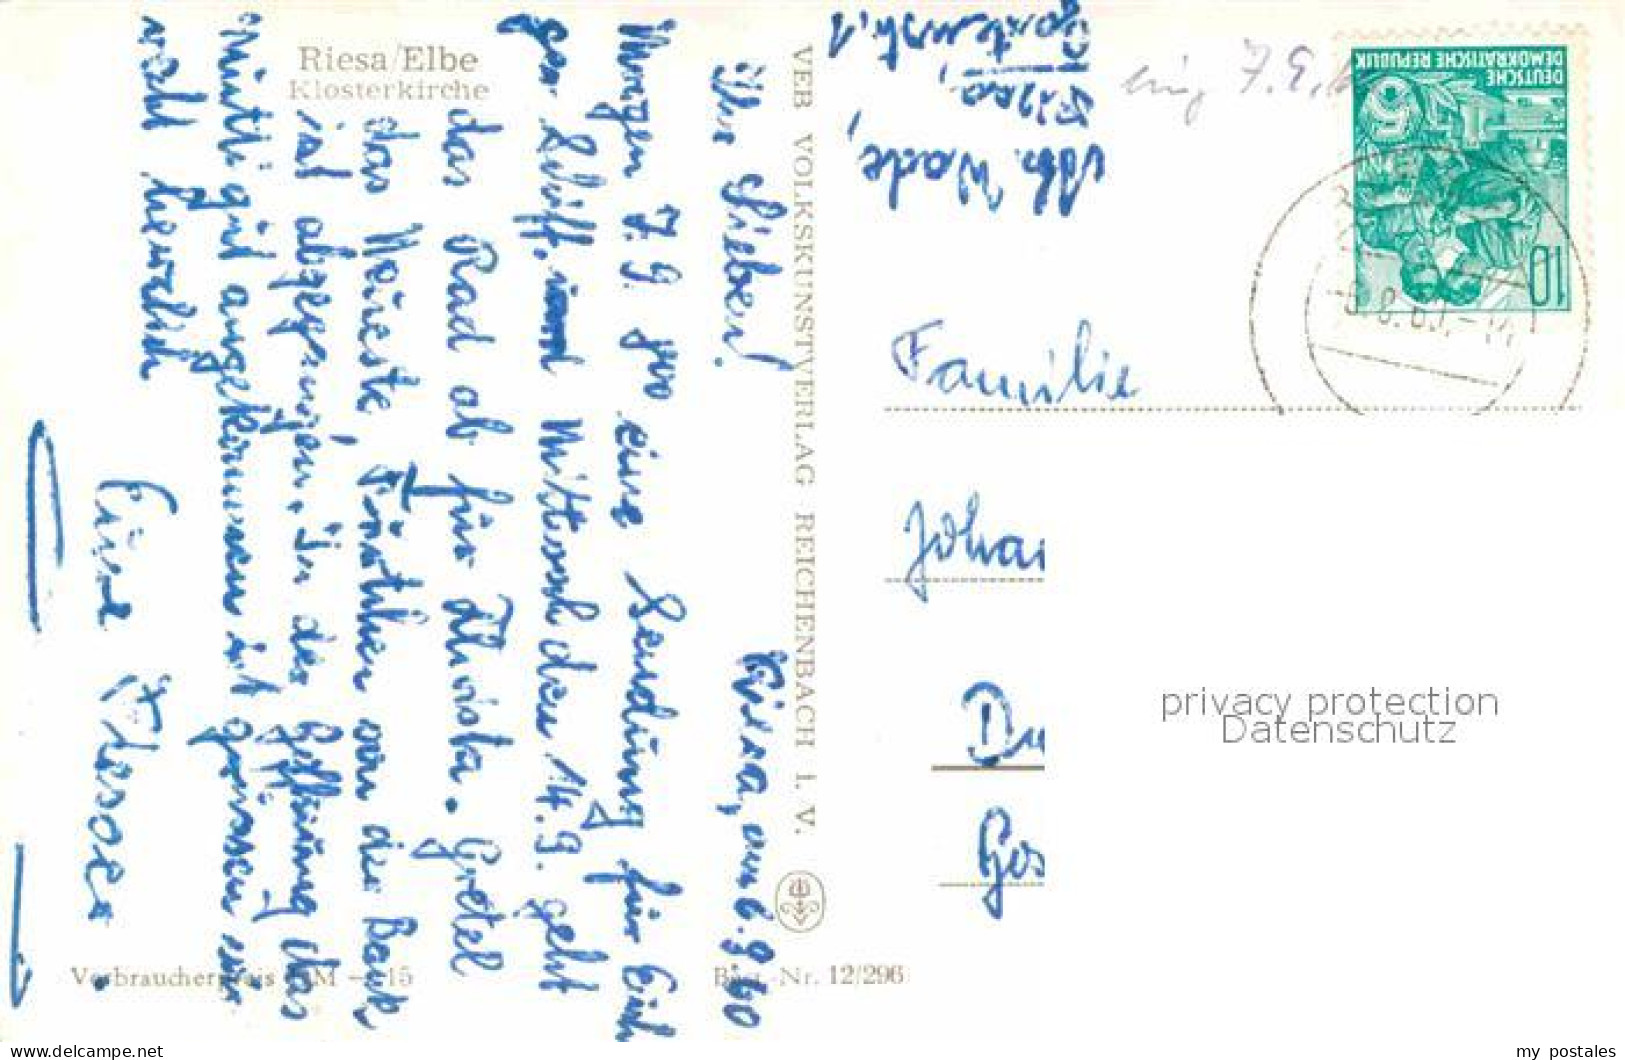 Riesa/Elbe
Klosterkirche
Riesa, am 6.9.60
Ihr Lieben!
Morgen 7.9. geht eine Sendung für Euch
per Schiff, und Mittwoch den 14.9. geht
das Rad ab für Christa. Gretel
das Neueste, von der Bank
ist abgesprungen. In der Hoffnung das
Mutti gut angekommen ist grüssen wir
recht herzlich
Eure
VEB VOLKSKUNSTVERLAG REICHENBACH I. V.
Verbraucherpreis DM –.15
Best.-Nr. 12/296
Abs. Wade,
Riesa,
eing. 7.9.
DEUTSCHE
DEMOKRATISCHE REPUBLIK
10
Familie
Johan
Du
Ges
privacy protection
Datenschutz
delcampe.net
my postales